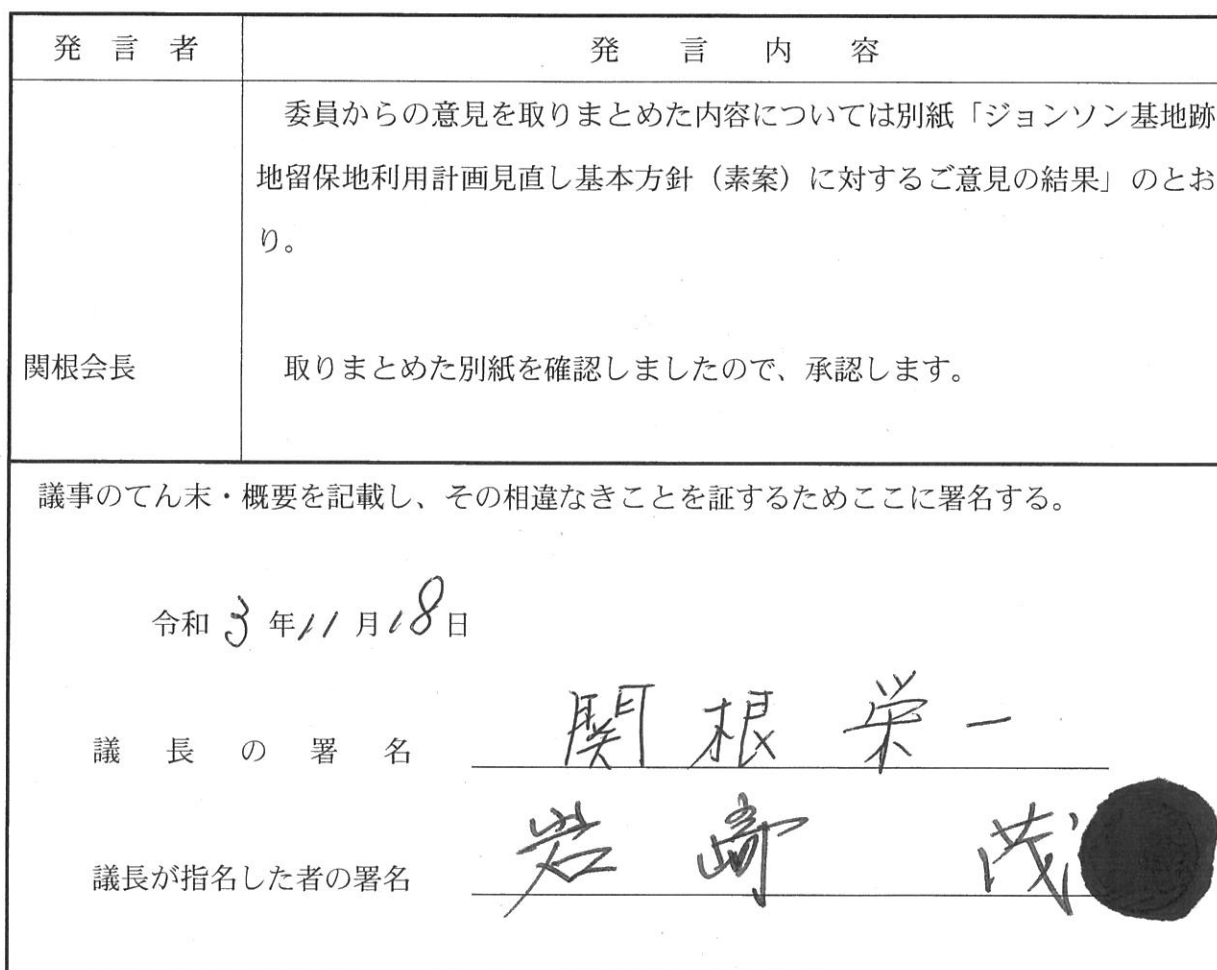 発言者 発言内容
委員からの意見を取りまとめた内容については別紙「ジョンソン基地跡
地留保地利用計画見直し基本方針（素案）に対するご意見の結果」のとお
り。
関根会長 取りまとめた別紙を確認しましたので、承認します。
議事のてん末・概要を記載し、その相違なきことを証するためここに署名する。
令和3年11月18日
議長の署名 関根栄一
議長が指名した者の署名 岩崎 茂